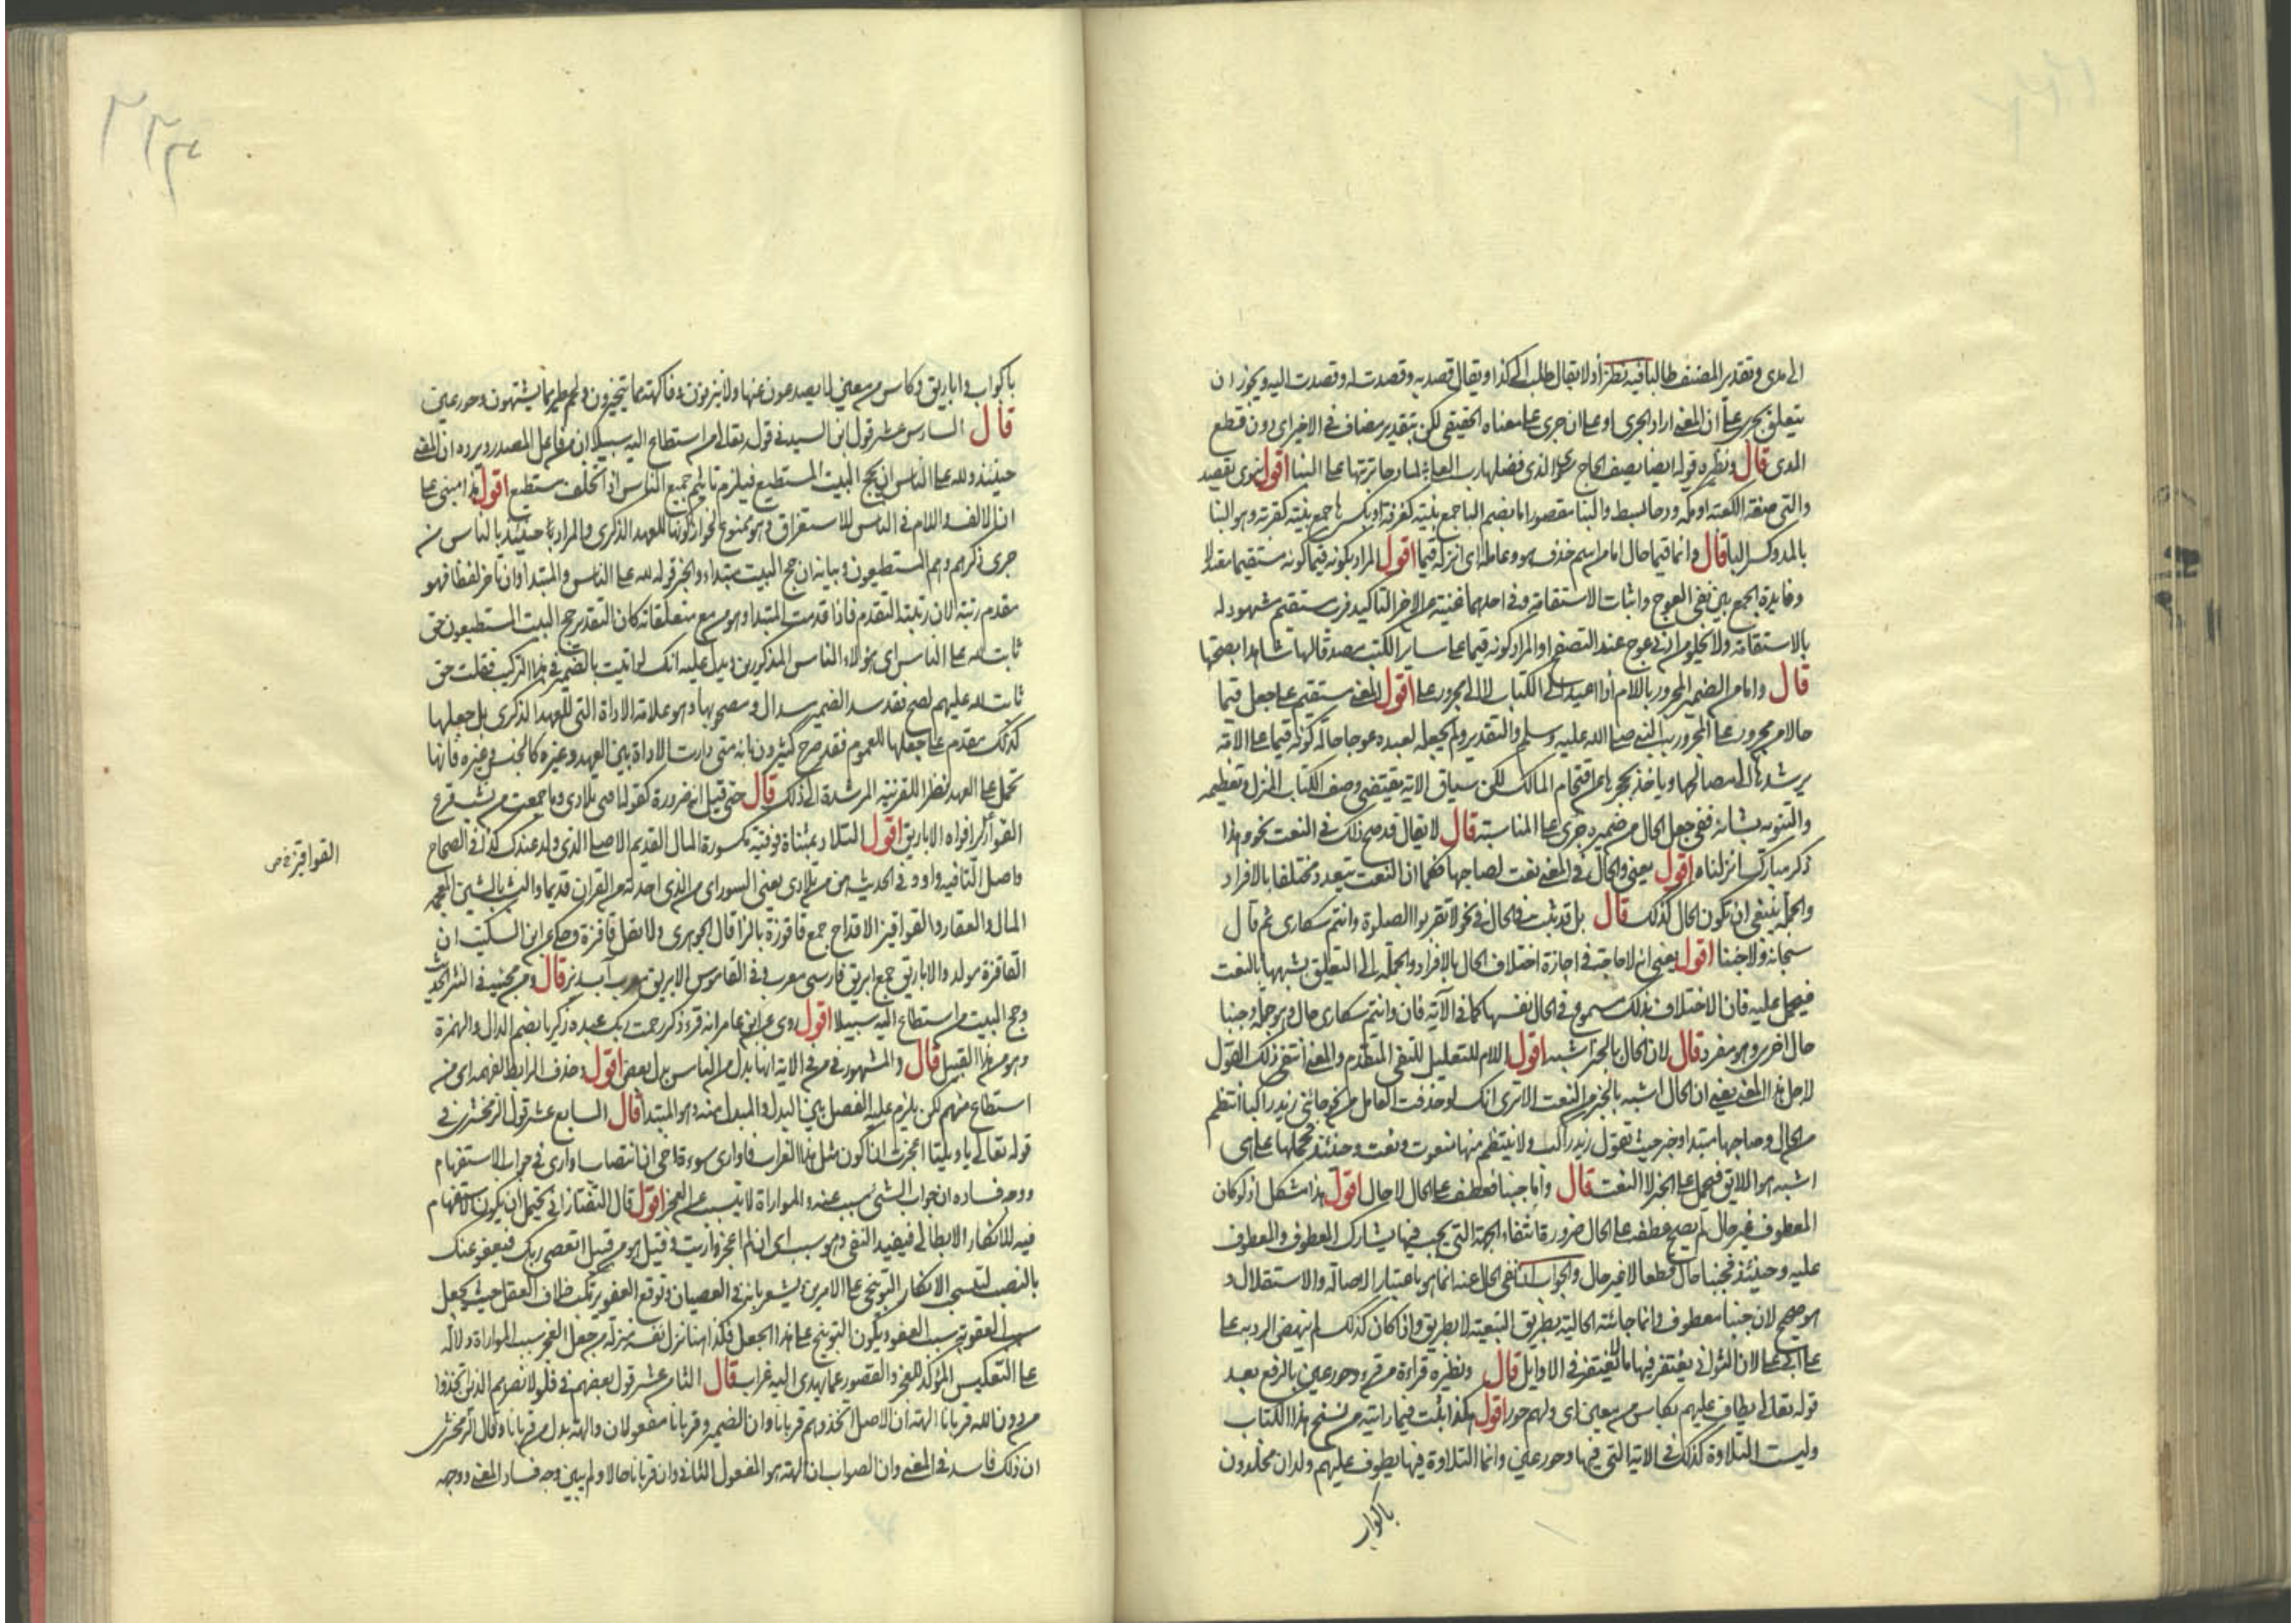 الى مدى وتقدير المصنف طالبا فيه نظر اذ لا يقال طلب الى كذا ويقال قصد به وقصدت له وقصدت اليه ويجوز ان
يتعلق بجرى على ان المعنى اراد الجرى او على ان جرى على معناه الحقيقى لكن بتقدير مضاف فى الاخير اى دون قطع
المدى قال ونظيره قوله ايضا يصف الحاج الذى فضلها رب العلى لما دحا تربتها على البنا اقول نوى يقصد
والتى صفة للكعبة او مكة ودحا بسط والبنا مقصور اما بضم البا جمع بنية كغرفة او بكسرها جمع بنية كقربة وهو البنا
بالمد وكسر البا قال وانما قيما حال اما من اسم حذف هو وعامله اى انزله قيما اقول المراد بكونه قيما كونه مستقيما معتدلا
وفايدة الجمع بين نفى العوج واثبات الاستقامة وفى احدهما غنية عن الاخر التاكيد فرب مستقيم مشهود له
بالاستقامة ولا يخلو من ادنى عوج عند التصفح او المراد كونه قيما على ساير الكتب مصدقا لها شاهدا بصحتها
قال واما من الضمير المجرور باللام اذا اعيد الى الكتاب لا الى مجرور على اقول المعنى مستقيم على جعل قيما
حالا من مجرور على المجرور به النبى صلى الله عليه وسلم والتقدير ولم يجعل لعبده عوجا حالة كونه قيما على الامة
يرشدها الى مصالحها وياخذ بحجزها عن اقتحام المهالك لكن سياق الاية يقتضى وصف الكتاب المنزل وتعظيمه
والتنويه بشانه ففى جعل الحال من ضميره جرى على المناسبة قال لا يقال قد صح ذلك فى النعت نحو وهذا
ذكر مبارك انزلناه اقول يعنى والحال فى المعنى نعت لصاحبها فكما ان النعت يتعدد مختلفا بالافراد
والجملة ينبغى ان تكون الحال كذلك قال بل قد ثبت فى الحال فى نحو لا تقربوا الصلوة وانتم سكارى ثم قال
سبحانه ولا جنبا اقول يعنى انه لا حاجة فى اجازة اختلاف الحال بالافراد والجملة الى التعلق بشبهها بالنعت
فيحمل عليه فان الاختلاف بذلك مسموع فى الحال نفسها كما فى الآية فان وانتم سكارى حال وهو جملة وجنبا
حال اخرى وهو مفرد قال لان الحال بالخبر اشبه اقول اللام للتعليل للنفى المتقدم والمعنى انتفى ذلك القول
لاجل هذا المعنى يعنى ان الحال اشبه بالخبر من النعت الا ترى انك لو حذفت العامل من نحو جائنى زيد راكبا انتظم
من الحال وصاحبها مبتدا وخبر حيث تقول زيد راكب ولا ينتظم منها منعوت ونعت وحينئذ فحملها على اى
اشبه هو اللايق فتحمل على الخبر لا النعت قال واما جنبا فعطف على الحال لا حال اقول هذا مشكل اذ لو كان
المعطوف غير حال لم يصح عطفه على الحال ضرورة انتفاء الجهة التى يجب فيها تشارك المعطوف والمعطوف
عليه وحينئذ فجنبا حال قطعا لا غير حال والجواب ان نفى الحال عنه انما هو باعتبار الاصالة والاستقلال و
هو صحيح لان جنبا معطوف وانما جائته الحالية بطريق التبعية لا بطريق واذا كان كذلك لم ينهض الرد به على
على ابى على لان الثوانى يغتفر فيها ما لا يغتفر فى الاوايل قال ونظيره قراءة من قرء وحور عين بالرفع بعد
قوله تعالى يطاف عليهم بكاس من معين اى ولهم حور اقول هكذا ثبت فيما رايته من نسخ هذا الكتاب
وليست التلاوة كذلك فى الاية التى فيها وحور عين وانما التلاوة فيها يطوف عليهم ولدان مخلدون
باكواب
باكواب واباريق وكاس من معين لا يصدعون عنها ولا ينزفون وفاكهة مما يتخيرون ولحم طير مما يشتهون وحور عين
قال السادس عشر قول ابن السيد فى قوله تعالى من استطاع اليه سبيلا ان من فاعل المصدر ويرده ان المعنى
حينئذ ولله على الناس ان يحج البيت المستطيع فيلزم تاثيم جميع الناس اذا تخلف مستطيع اقول هذا مبنى على
ان الالف واللام فى الناس للاستغراق وهو ممنوع لجواز كونها للعهد الذكرى والمراد حينئذ بالناس من
جرى ذكرهم وهم المستطيعون وبيانه ان حج البيت مبتداء والخبر قوله لله على الناس والمبتدا وان تاخر لفظا فهو
مقدم رتبة لان رتبته التقدم فاذا قدمت المبتدا وهو مع متعلقاته كان التقدير حج البيت المستطيعون حق
ثابت لله على الناس اى هولاء الناس المذكورين ويدل عليه انك لو اتيت بالضمير فى هذا التركيب فقلت حق
ثابت لله عليهم لصح فقد سد الضمير مسد ال ومصحوبها وهو علامة الاداة التى للعهد الذكرى بل جعلها
كذلك مقدم على جعلها للعموم فقد صرح كثيرون بانه متى دارت الاداة بين العهد وغيره كالجنس وغيره فانها
تحمل على العهد نظرا للقرينة المرشدة الى ذلك قال حتى قيل انه ضرورة كقوله افنى تلادى وما جمعت من نشب قرع
القواقيز افواه الاباريق اقول التلاد بمثناة فوقية مكسورة المال القديم الاصلى الذى ولد عندك كذا فى الصحاح
واصل التا فيه واو وفى الحديث هن من تلادى يعنى السور اى من الذى اخذته من القران قديما والنشب بالشين المعجمة
المال والعقار والقواقيز الاقداح جمع قاقوزة بالزا قال الجوهرى ولا تقل قاقزة وحكى عن ابن السكيت ان
القاقزة مولد والاباريق جمع ابريق فارسى معرب وفى القاموس الابريق معرب آب ريز قال ومن مجيئه فى النثر الحديث
وحج البيت من استطاع اليه سبيلا اقول روى عن ابن عامر انه قرء ذكر رحمت ربك عبده زكريا بضم الدال والهمزة
وهو من هذا القبيل قال والمشهور فى من فى الاية انها بدل من الناس بدل بعض اقول وحذف الرابط لفهمه اى من
استطاع منهم لكن يلزم عليه الفصل بين البدل والمبدل منه وهو المبتدا قال السابع عشر قول الزمخشرى فى
قوله تعالى يا ويلتا اعجزت ان اكون مثل هذا الغراب فاوارى سوءة اخى ان انتصاب اوارى فى جواب الاستفهام
ووجه فساده ان جواب الشئ مسبب عنه والمواراة لا تتسبب عن العجز اقول قال التفتازانى يحتمل ان يكون الاستفهام
فيه للانكار الابطالى فيفيد النفى وهو سبب اى ان لم اعجز واريت وقيل هو من قبيل اتعصى ربك فيعفو عنك
بالنصب لتسبيب الانكار التوبيخى على الامرين ويشعر بانه فى العصيان وتوقع العفو يرتكب خلاف العقل حيث يجعل
سبب العقوبة سبب العفو ويكون التوبيخ على هذا الجعل فكذا هنا نزل نفسه منزلة من جعل العجز سبب المواراة دلالة
على التعكيس المؤكد للعجز والقصور عما يهدى اليه غراب قال الثامن عشر قول بعضهم فى فلولا نصرهم الذين اتخذوا
من دون الله قربانا الهة ان الاصل اتخذوهم قربانا وان الضمير وقربانا مفعولان والهة بدل من قربانا وقال الزمخشرى
ان ذلك فاسد فى المعنى وان الصواب ان الهة هو المفعول الثانى وان قربانا حال ولم يبين وجه فساد المعنى ووجهه
القواقيز ص